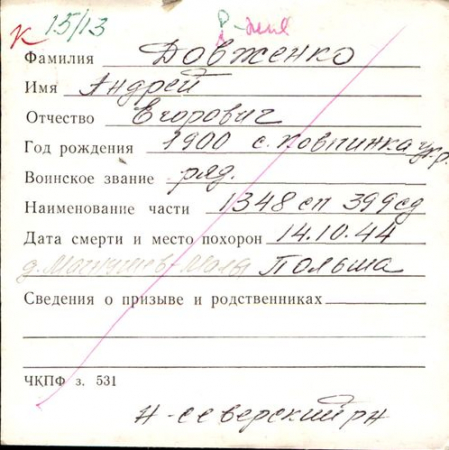 К 15/13
Фамилия Довженко
Имя Андрей
Отчество Егорович
Год рождения 1900 с. Ковпинка
Воинское звание ряд.
Наименование части 1348 сп 399 сд
Дата смерти и место похорон 14.10.44
д. Магнушев-Малы Польша
Сведения о призыве и родственниках
ЧКПФ з. 531
Н-северский рн